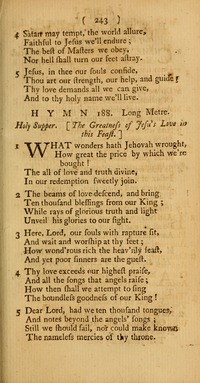 ( 243 )
4 Satan may tempt, the world allure,
Faithful to Jeſus we'll endure ;
The beſt of Maſters we obey,
Nor hell ſhall turn our feet aſtray.
5 Jeſus, in thee our ſouls confide,
Thou art our ſtrength, our help, and guide !
Thy love demands all we can give,
And to thy holy name we'll live.
H Y M N 188. Long Metre.
Holy Supper. [ The Greatneſs of Jeſu's Love in
this Feaſt. ]
1 WHAT wonders hath Jehovah wrought,
How great the price by which we're
bought !
The all of love and truth divine,
In our redemption ſweetly join.
2 The beams of love deſcend, and bring
Ten thouſand bleſſings from our King ;
While rays of glorious truth and light
Unveil his glories to our ſight.
3 Here, Lord, our ſouls with rapture ſit,
And wait and worſhip at thy feet ;
How wond'rous rich the heav'nly feaſt,
And yet poor ſinners are the gueſt.
4 Thy love exceeds our higheſt praiſe,
And all the ſongs that angels raiſe ;
How then ſhall we attempt to ſing
The boundleſs goodneſs of our King !
5 Dear Lord, had we ten thouſand tongues,
And notes beyond the angels' ſongs ;
Still we ſhould fail, nor could make known
The nameleſs mercies of thy throne.